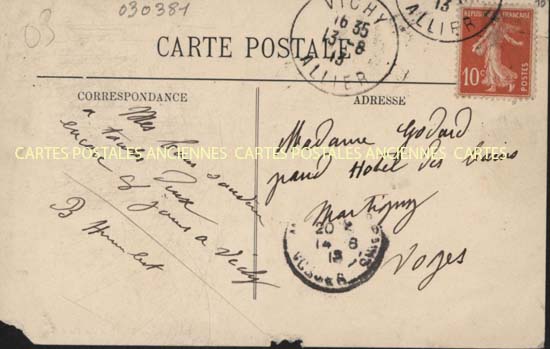 030381
03
CARTE POSTALE
VICHY
16 35
13-8
13
ALLIER
13
ALLIER
RÉPUBLIQUE FRANÇAISE
10c
POSTES
CORRESPONDANCE
ADRESSE
Mes
a tous deux
encore 8 jours a Vichy
B Humbert
Madame Godard
grand Hotel des Bains
Martigny
Voges
20
14-8
13
VOSGES
CARTES POSTALES ANCIENNES CARTES POSTALES ANCIENNES CARTES